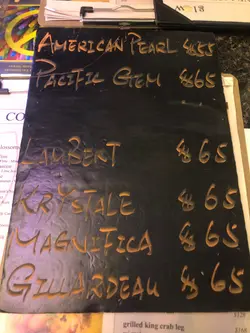 AMERICAN PEARL $55
PACIFIC GEM $65
LAMBERT $65
KRYSTALE $65
MAGNIFICA $65
GILLARDEAU $65
grilled king crab leg